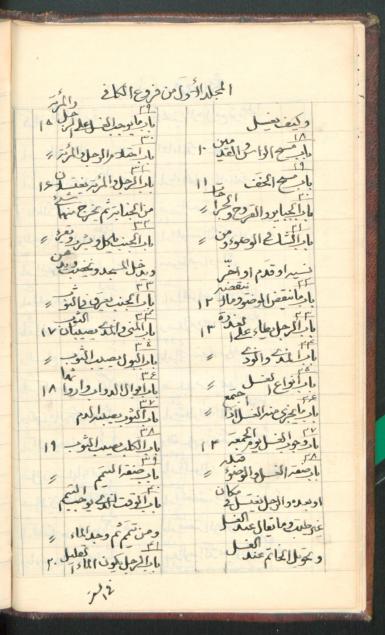 المجلد الأول من فروع الكافي
وكيف يغسل
١٨
باب مسح الرأس والقدمين ١٠
١٩
باب مسح الخف ١١
٢٠
باب الجبائر والقروح والجراحات
٢١
باب الشك في الوضوء ومن
نسيه او قدم او اخّر
٢٢
باب ما ينقض الوضوء وما لا ينقضه ١٢
٢٣
باب الرجل يطأ على العذرة ١٣
٢٤
باب المذي والودي
٢٥
باب أنواع الغسل
٢٦
باب ما يجزي منه الغسل اذا اجتمع
٢٧
باب وجوب الغسل يوم الجمعة ١٤
٢٨
باب صفة الغسل والوضوء قبله
او بعده والرجل يغتسل في مكان
غير طيب وما يقال عند الغسل
وتحويل الخاتم عند الغسل
٢٩
باب ما يوجب الغسل على الرجل والمرأة ١٥
٣٠
باب احتلام الرجل والمرأة
٣١
باب الرجل والمرأة يغتسلان ١٦
من الجنابة ثم يخرج منهما شيء
٣٢
باب الجنب يأكل ويشرب ويقرأ
ويدخل المسجد ويختضب ويدهن
٣٣
باب الجنب يعرق في الثوب
٣٤
باب المني والمذي يصيبان الثوب ١٧
٣٥
باب البول يصيب الثوب
٣٦
باب ابوال الدواب وارواثها ١٨
٣٧
باب الثوب يصيبه الدم
٣٨
باب الكلب يصيب الثوب ١٩
٣٩
باب صفة التيمم
٤٠
باب الوقت الذي يوجب التيمم
ومن تيمم ثم وجد الماء
٤١
باب الرجل يكون الماء القليل ٢٠